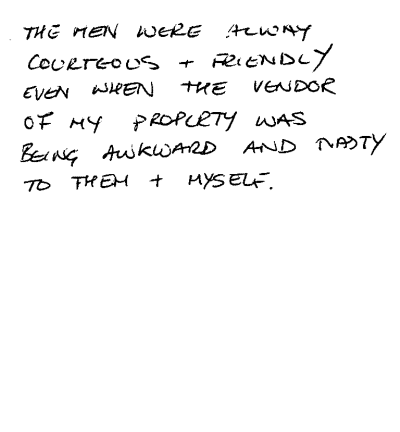 THE MEN WERE ALWAY
COURTEOUS + FRIENDLY
EVEN WHEN THE VENDOR
OF MY PROPERTY WAS
BEING AWKWARD AND NASTY
TO THEM + MYSELF.